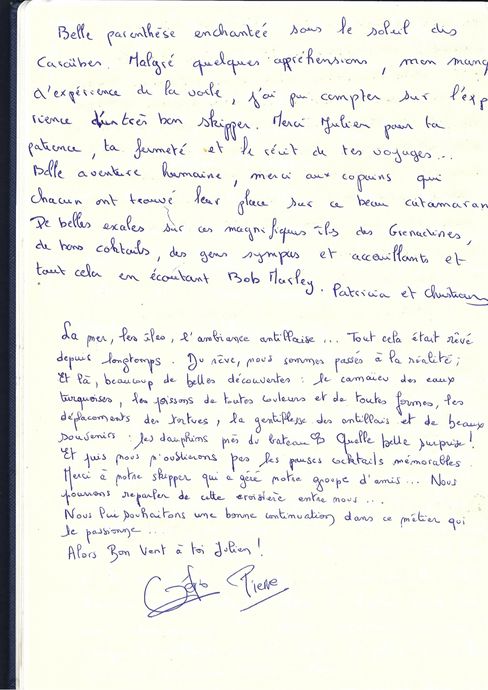 Belle parenthèse enchantée sous le soleil des
Caraïbes. Malgré quelques appréhensions, mon manq
d'expérience de la voile, j'ai pu compter sur l'exp
rience d'un très bon skipper. Merci Julien pour ta
patience, ta fermeté et le récit de tes voyages...
Belle aventure humaine, merci aux copains qui
chacun ont trouvé leur place sur ce beau catamaran
De belles escales sur ces magnifiques îles des Grenadines,
de bons coktails, des gens sympas et accueillants et
tout cela en écoutant Bob Marley. Patricia et Christian
La mer, les îles, l'ambiance antillaise... Tout cela était rêvé
depuis longtemps. Du rêve, nous sommes passés à la réalité;
Et là, beaucoup de belles découvertes : le camaïeu des eaux
turquoises, les poissons de toutes couleurs et de toutes formes, les
déplacements des tortues, la gentillesse des antillais et de beaux
souvenirs : les dauphins près du bateau Quelle belle surprise!
Et puis nous n'oublierons pas les pauses cocktails mémorables.
Merci à notre skipper qui a géré notre groupe d'amis... Nous
pourrons reparler de cette croisière entre nous...
Nous lui souhaitons une bonne continuation dans ce métier qui
le passionne...
Alors Bon Vent à toi Julien!
Pierre